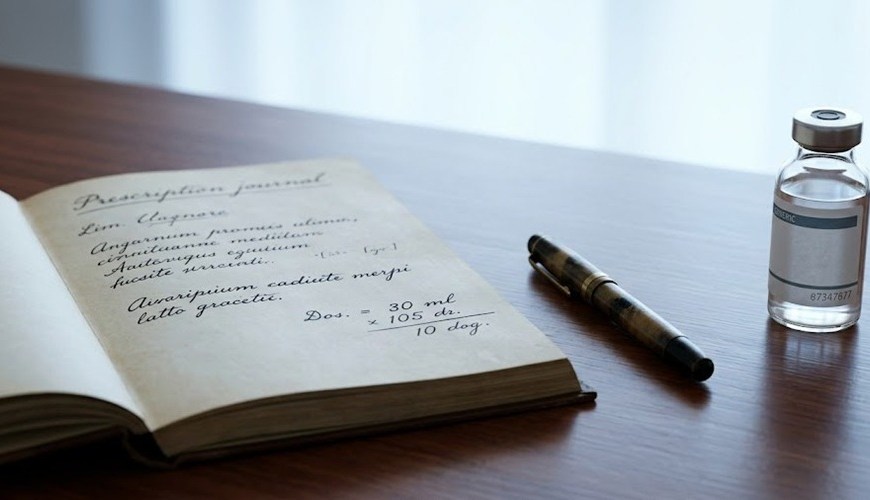 Prescription journal
Lim. Ungnore
Angarnum promies ulama,
cinniluanne medidam
Aaitevigus egudium
fucsite urrcinli..
Awaripiium cadiute merpi
latto gracetie.
Dos. = 30 ml
× 105 dr.
10 dog.
87347877